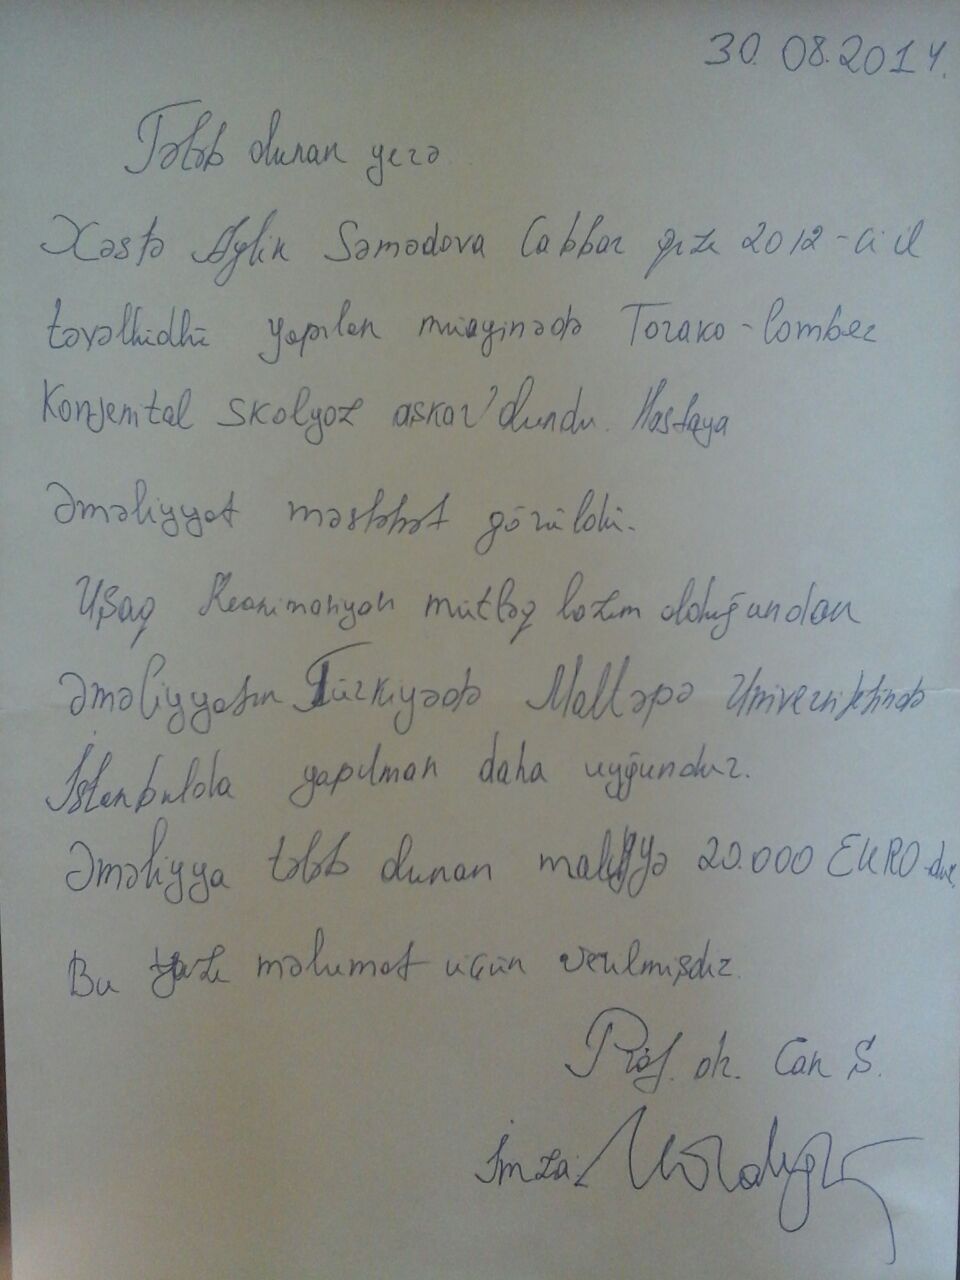 30.08.2014.
Tələb olunan yerə
Xəstə Aylin Səmədova Cabbar qızı 2012-ci il
təvəllüdlü yapılan müayinədə Torako-lomber
Konjenital skolyoz aşkar olundu. Hastaya
Əməliyyat məsləhət görüldü.
Uşaq Reanimasiyan mütləq lazım olduğundan
Əməliyyatın Türkiyədə Maltəpə Universitetində
İstanbulda yapılman daha uyğundur.
Əməliyya tələb olunan maliyyə 20.000 EURO-dur.
Bu yazı məlumat üçün verilmişdir.
Prof. dr. Can S.
İmza: